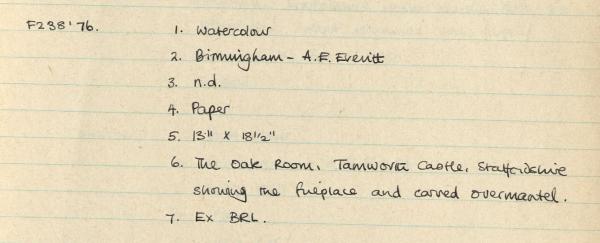 F238'76.
1. Watercolour
2. Birmingham - A.E. Everitt
3. n.d.
4. Paper
5. 13" x 18½"
6. The Oak Room, Tamworth Castle, Staffordshire
showing the fireplace and carved overmantel.
7. Ex BRL.